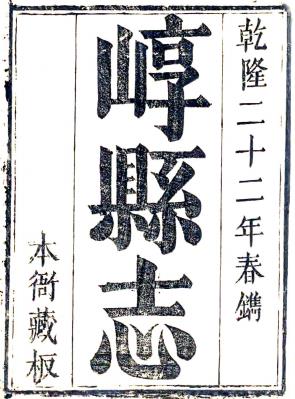 乾隆二十二年春鐫
崞縣志
本衙藏板